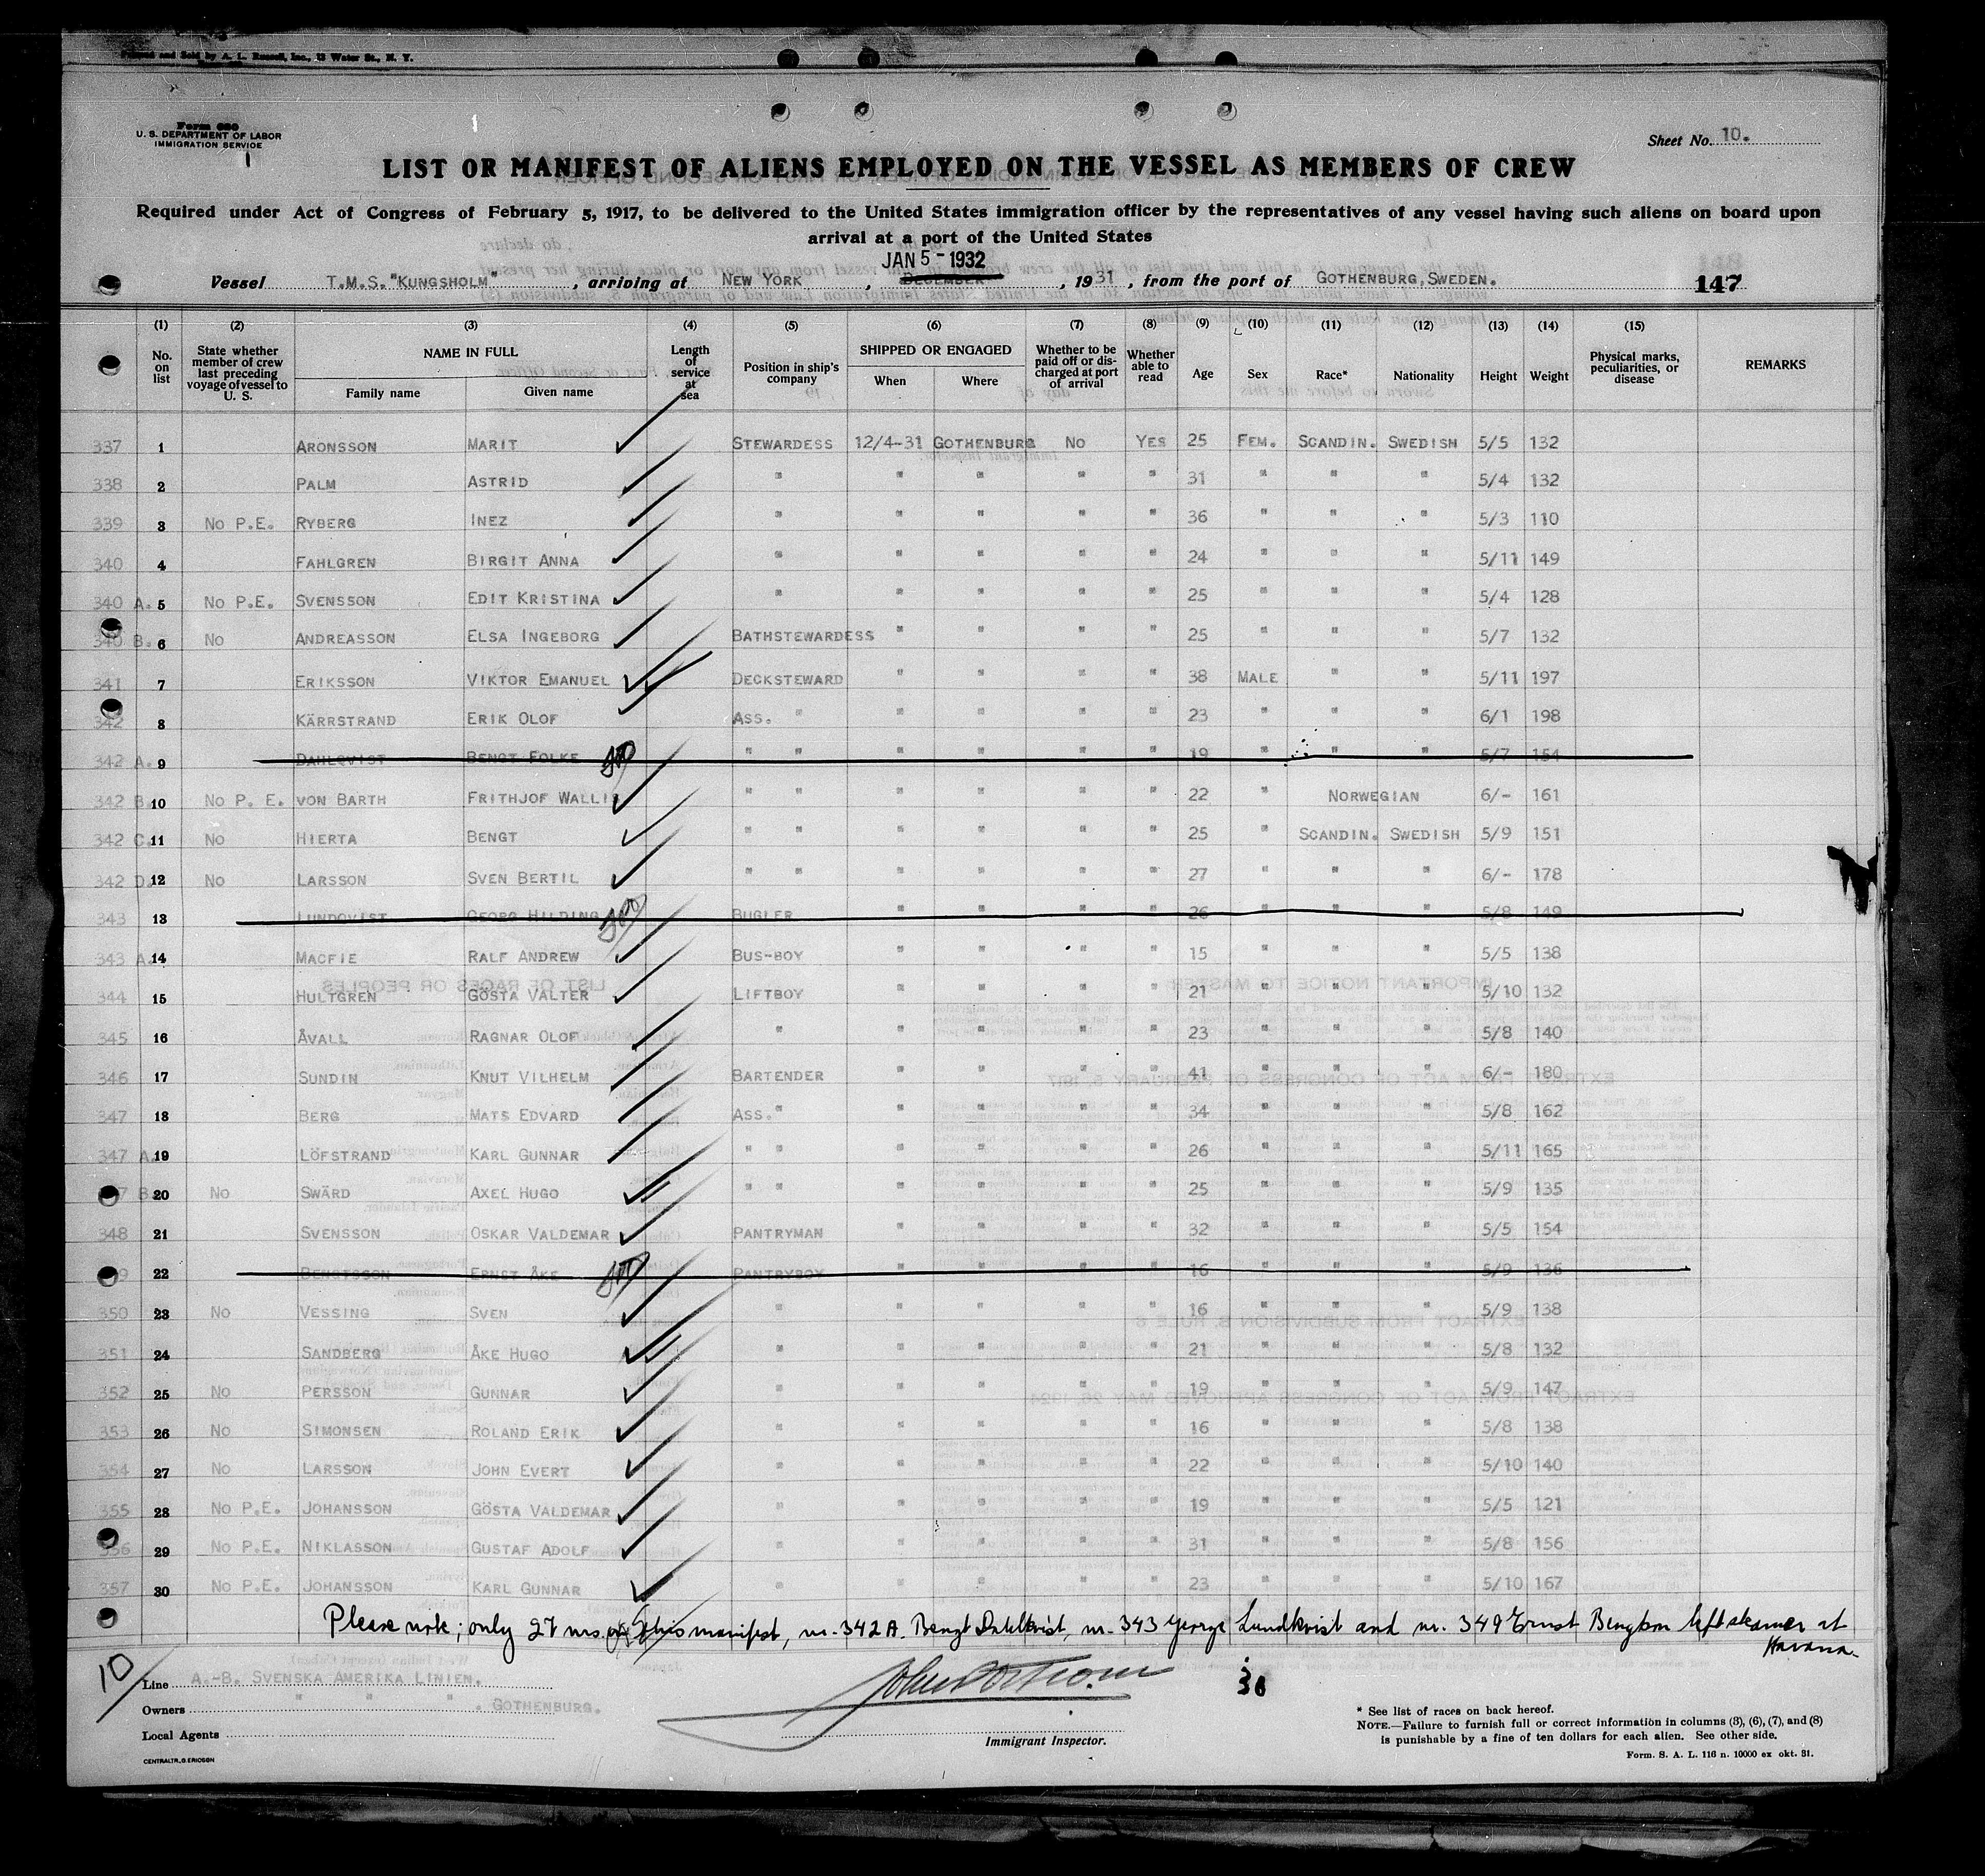 Printed and Sold by A. L. Russell, Inc., 13 Water St., N. Y.
Form 680
U. S. DEPARTMENT OF LABOR
IMMIGRATION SERVICE
Sheet No. 10.
LIST OR MANIFEST OF ALIENS EMPLOYED ON THE VESSEL AS MEMBERS OF CREW
Required under Act of Congress of February 5, 1917, to be delivered to the United States immigration officer by the representatives of any vessel having such aliens on board upon
arrival at a port of the United States
JAN 5 - 1932
Vessel T.M.S. "KUNGSHOLM", arriving at NEW YORK, DECEMBER, 1931, from the port of GOTHENBURG, SWEDEN. 147
(1) (2) (3) (4) (5) (6) (7) (8) (9) (10) (11) (12) (13) (14) (15)
No. on list | State whether member of crew last preceding voyage of vessel to U. S. | NAME IN FULL Family name Given name | Length of service at sea | Position in ship's company | SHIPPED OR ENGAGED When Where | Whether to be paid off or discharged at port of arrival | Whether able to read | Age | Sex | Race* | Nationality | Height | Weight | Physical marks, peculiarities, or disease | REMARKS
337 1 ARONSSON MARIT STEWARDESS 12/4-31 GOTHENBURG NO YES 25 FEM. SCANDIN. SWEDISH 5/5 132
338 2 PALM ASTRID " " " " " 31 " " " 5/4 132
339 3 NO P.E. RYBERG INEZ " " " " " 36 " " " 5/3 110
340 4 FAHLGREN BIRGIT ANNA " " " " " 24 " " " 5/11 149
340 A. 5 NO P.E. SVENSSON EDIT KRISTINA " " " " " 25 " " " 5/4 128
340 B. 6 NO ANDREASSON ELSA INGEBORG BATHSTEWARDESS " " " " 25 " " " 5/7 132
341 7 ERIKSSON VIKTOR EMANUEL DECKSTEWARD " " " " 38 MALE " " 5/11 197
342 8 KÄRRSTRAND ERIK OLOF ASS. " " " " " 23 " " " 6/1 198
342 A. 9 DAHLQVIST BENGT FOLKE " " " " " " 19 " " " 5/7 154
342 B. 10 NO P. E. VON BARTH FRITHJOF WALLIS " " " " " " 22 " NORWEGIAN 6/- 161
342 C. 11 NO HIERTA BENGT " " " " " " 25 " SCANDIN. SWEDISH 5/9 151
342 D. 12 NO LARSSON SVEN BERTIL " " " " " " 27 " " " 6/- 178
343 13 LUNDQVIST GEORG HILDING BUGLER " " " " 26 " " " 5/8 149
343 A. 14 MACFIE RALF ANDREW BUS-BOY " " " " 15 " " " 5/5 138
344 15 HULTGREN GÖSTA VALTER LIFTBOY " " " " 21 " " " 5/10 132
345 16 ÅVALL RAGNAR OLOF " " " " " 23 " " " 5/8 140
346 17 SUNDIN KNUT VILHELM BARTENDER " " " " 41 " " " 6/- 180
347 18 BERG MATS EDVARD ASS. " " " " " 34 " " " 5/8 162
347 A. 19 LÖFSTRAND KARL GUNNAR " " " " " " 26 " " " 5/11 165
7 B. 20 NO SWÄRD AXEL HUGO " " " " " " 25 " " " 5/9 135
348 21 SVENSSON OSKAR VALDEMAR PANTRYMAN " " " " 32 " " " 5/5 154
9 22 BENGTSSON ERNST ÅKE PANTRYBOY " " " " 16 " " " 5/9 136
350 23 NO VESSING SVEN " " " " " 16 " " " 5/9 138
351 24 SANDBERG ÅKE HUGO " " " " " 21 " " " 5/8 132
352 25 NO PERSSON GUNNAR " " " " " 19 " " " 5/9 147
353 26 NO SIMONSEN ROLAND ERIK " " " " " 16 " " " 5/8 138
354 27 NO LARSSON JOHN EVERT " " " " " 22 " " " 5/10 140
355 28 NO P.E. JOHANSSON GÖSTA VALDEMAR " " " " " 19 " " " 5/5 121
356 29 NO P.E. NIKLASSON GUSTAF ADOLF " " " " " 31 " " " 5/8 156
357 30 NO P.E. JOHANSSON KARL GUNNAR " " " " " 23 " " " 5/10 167
Please note; only 27 nrs. on this manifest, nr. 342 A. Bengt Dahlkvist, nr. 343 George Lundkvist and nr. 349 Ernst Bengtson left steamer at
Havana.
10
Line A.-B. SVENSKA AMERIKA LINIEN.
Owners " " " . GOTHENBURG.
Local Agents
Immigrant Inspector.
30
* See list of races on back hereof.
NOTE.—Failure to furnish full or correct information in columns (3), (6), (7), and (8)
is punishable by a fine of ten dollars for each alien. See other side.
CENTRALTR., G. ERICSON
Form. S. A. L. 116 n. 10000 ex okt. 31.